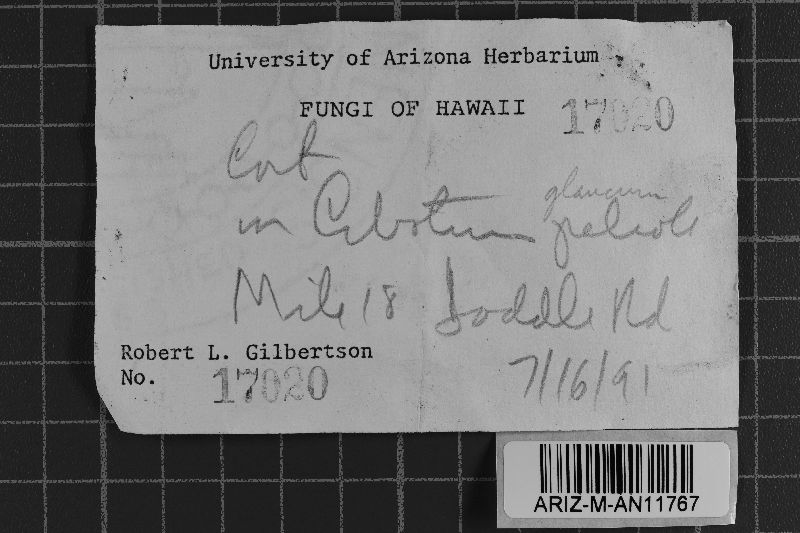 University of Arizona Herbarium
FUNGI OF HAWAII 17020
Cort
on Cibotium glaucum petiole
Mile 18 Saddle Rd
Robert L. Gilbertson
No. 17020
7/16/91
ARIZ-M-AN11767